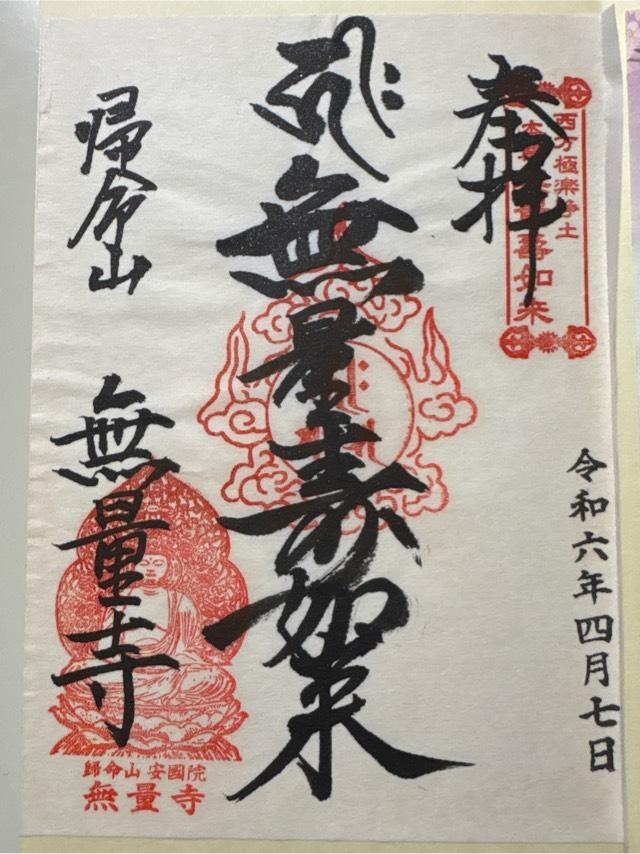 奉拝
西方極楽浄土
壽如来
令和六年四月七日
無量寿如来
帰命山
無量寺
歸命山 安國院
無量寺